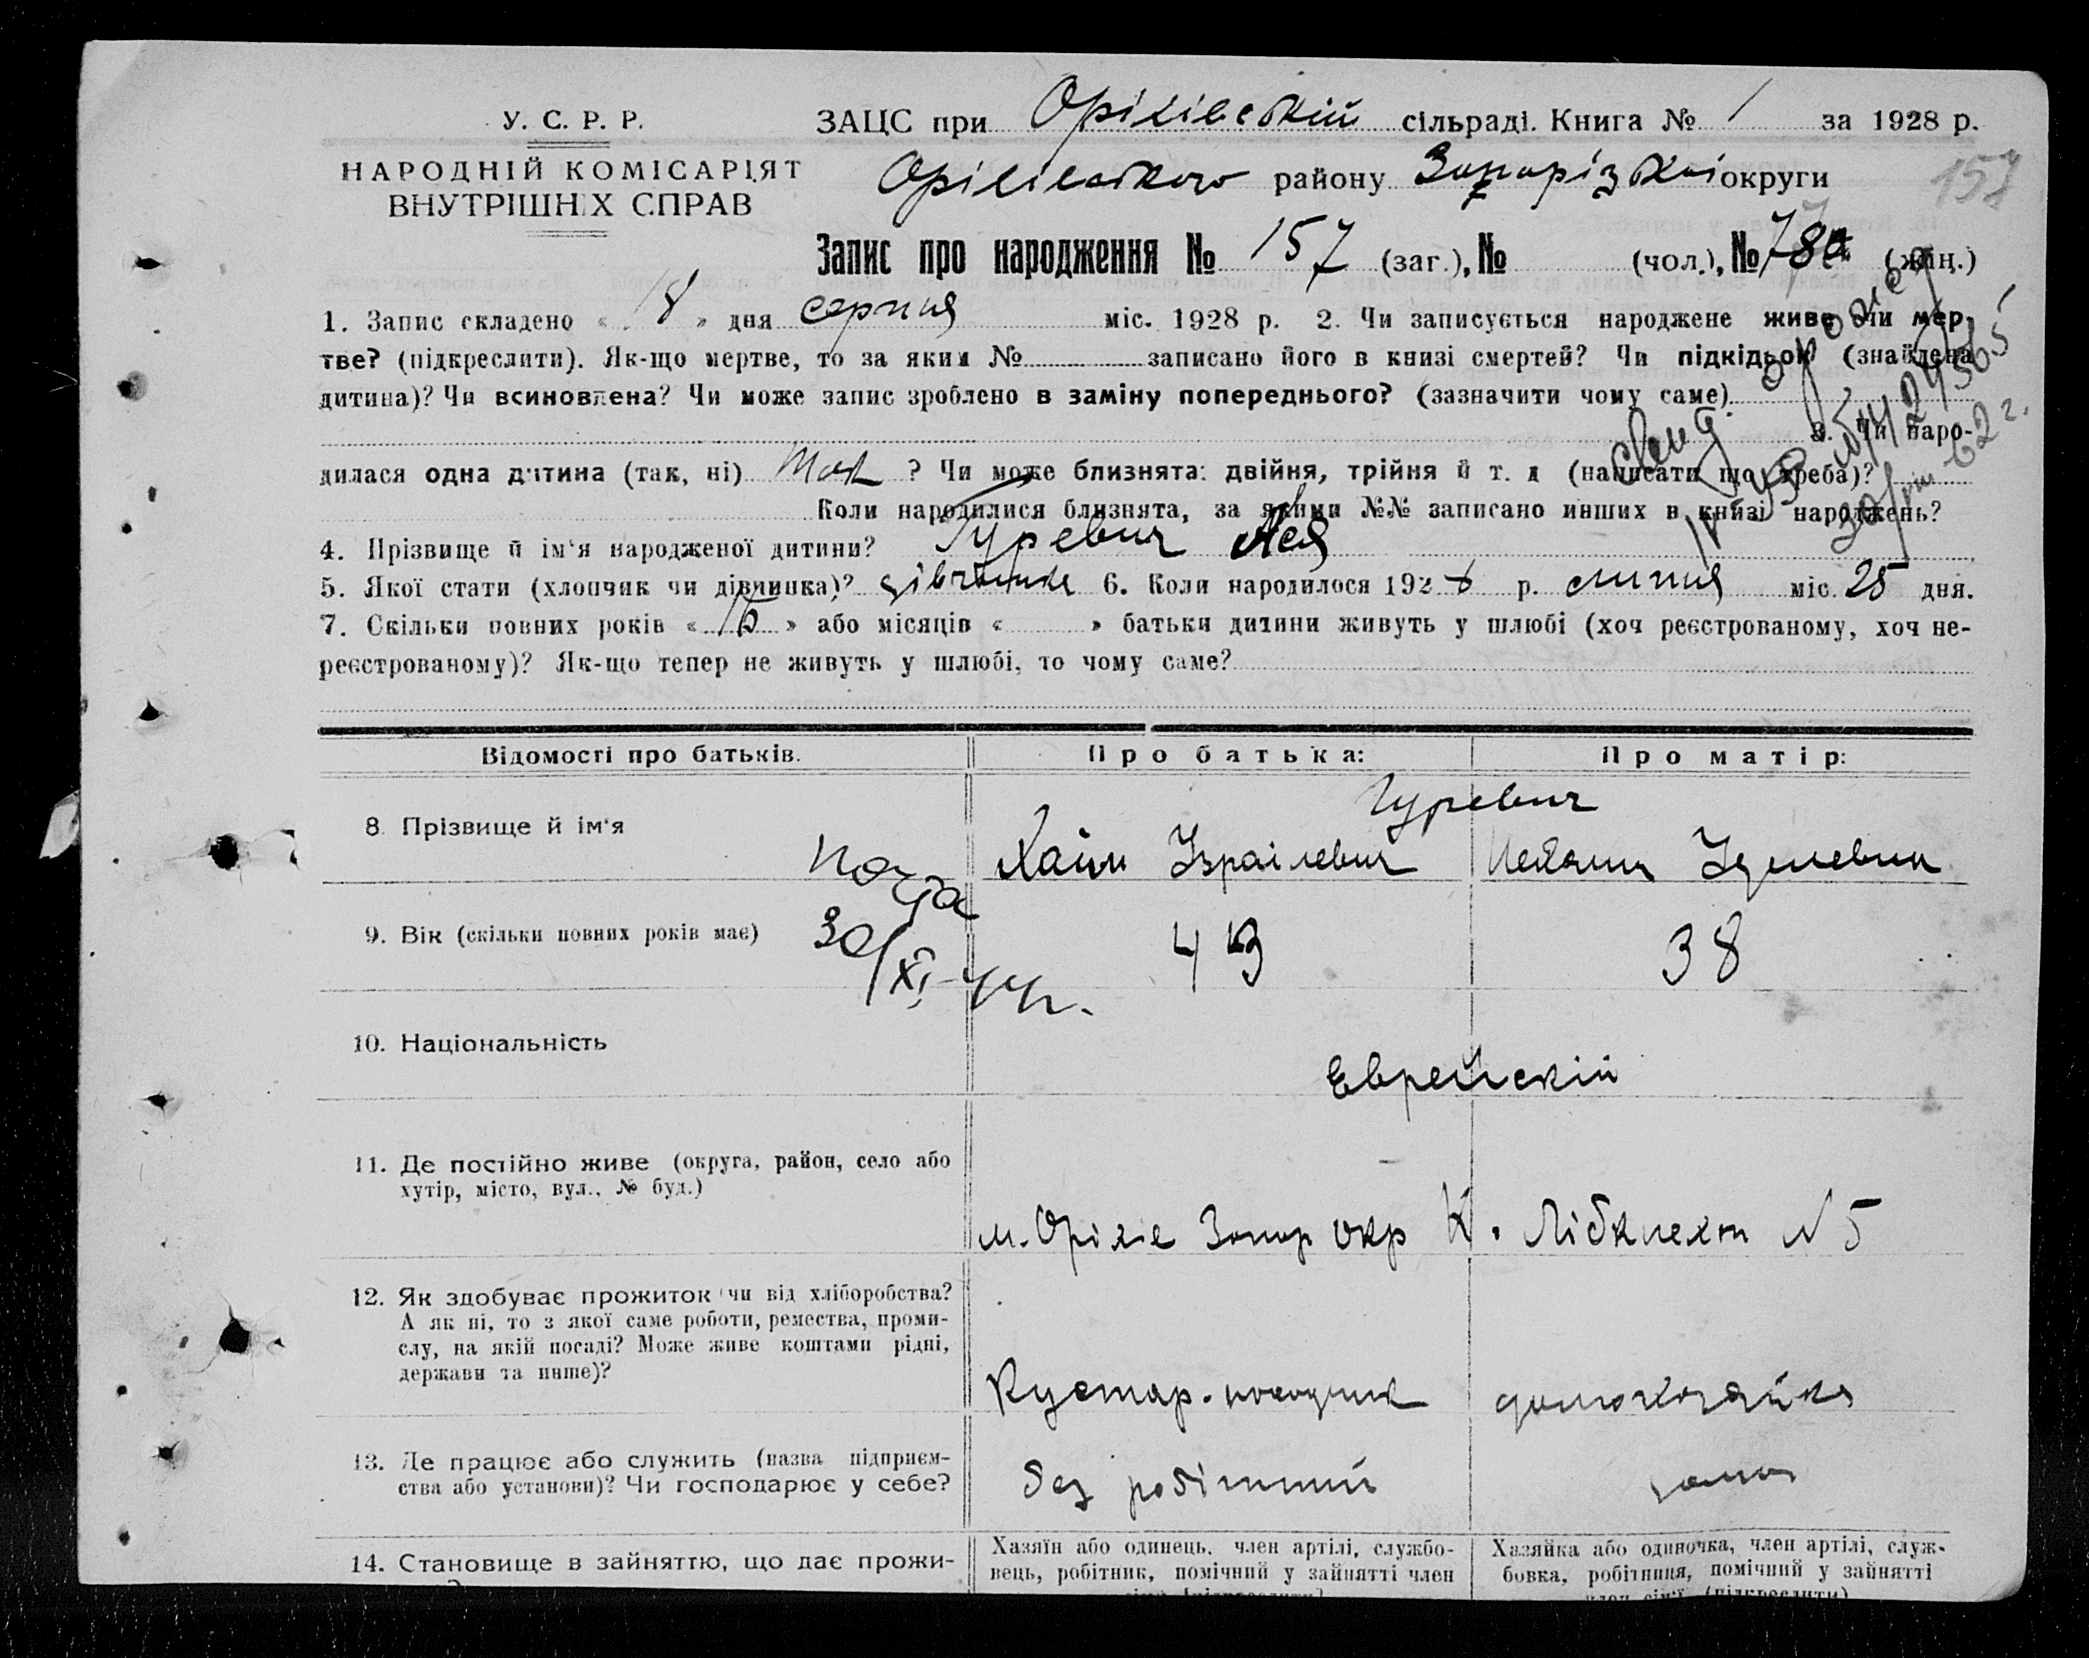 У. С. Р. Р.
НАРОДНІЙ КОМІСАРІЯТ
ВНУТРІШНІХ СПРАВ
ЗАЦС при Оріхівській сільраді. Книга № 1 за 1928 р.
Оріхівського району Запорізької округи
157
Запис про народження № 157 (заг.), № (чол.), № 78 (жін.)
1. Запис складено « 18 » дня серпня міс. 1928 р. 2. Чи записується народжене живе чи мер-
тве? (підкреслити). Як-що мертве, то за яким № записано його в книзі смертей? Чи підкідьок (знайдена
дитина)? Чи всиновлена? Чи може запис зроблено в заміну попереднього? (зазначити чому саме)
3. Чи наро-
дилася одна дитина (так, ні) Так ? Чи може близнята: двійня, трійня й т. д (написати що треба)?
Коли народилися близнята, за якими №№ записано инших в книзі народжень?
4. Прізвище й ім'я народженої дитини? Гуревич Ася
5. Якої стати (хлопчик чи дівчинка)? дівчинка 6. Коли народилося 1928 р. липня міс. 25 дня.
7. Скільки повних років « 16 » або місяців « » батьки дитини живуть у шлюбі (хоч реєстрованому, хоч не-
реєстрованому)? Як-що тепер не живуть у шлюбі, то чому саме?
Відомості про батьків.
Про батька:
Про матір:
8. Прізвище й ім'я
Гуревич
Хаім Ізраілевич
9. Вік (скільки повних років має)
43
38
30/XI-44г.
10. Національність
Еврейскій
11. Де постійно живе (округа, район, село або
хутір, місто, вул., № буд.)
м. Оріхів Запор окр К. Лібкнехт № 5
12. Як здобуває прожиток чи від хліборобства?
А як ні, то з якої саме роботи, ремества, проми-
слу, на якій посаді? Може живе коштами рідні,
держави та инше)?
Кустар.
домохозяйка
13. Де працює або служить (назва підприєм-
ства або установи)? Чи господарює у себе?
без
14. Становище в зайняттю, що дає прожи-
Хазяїн або одинець, член артілі, службо-
вець, робітник, помічний у зайнятті член
Хазяйка або одиночка, член артілі, служ-
бовка, робітниця, помічний у зайнятті